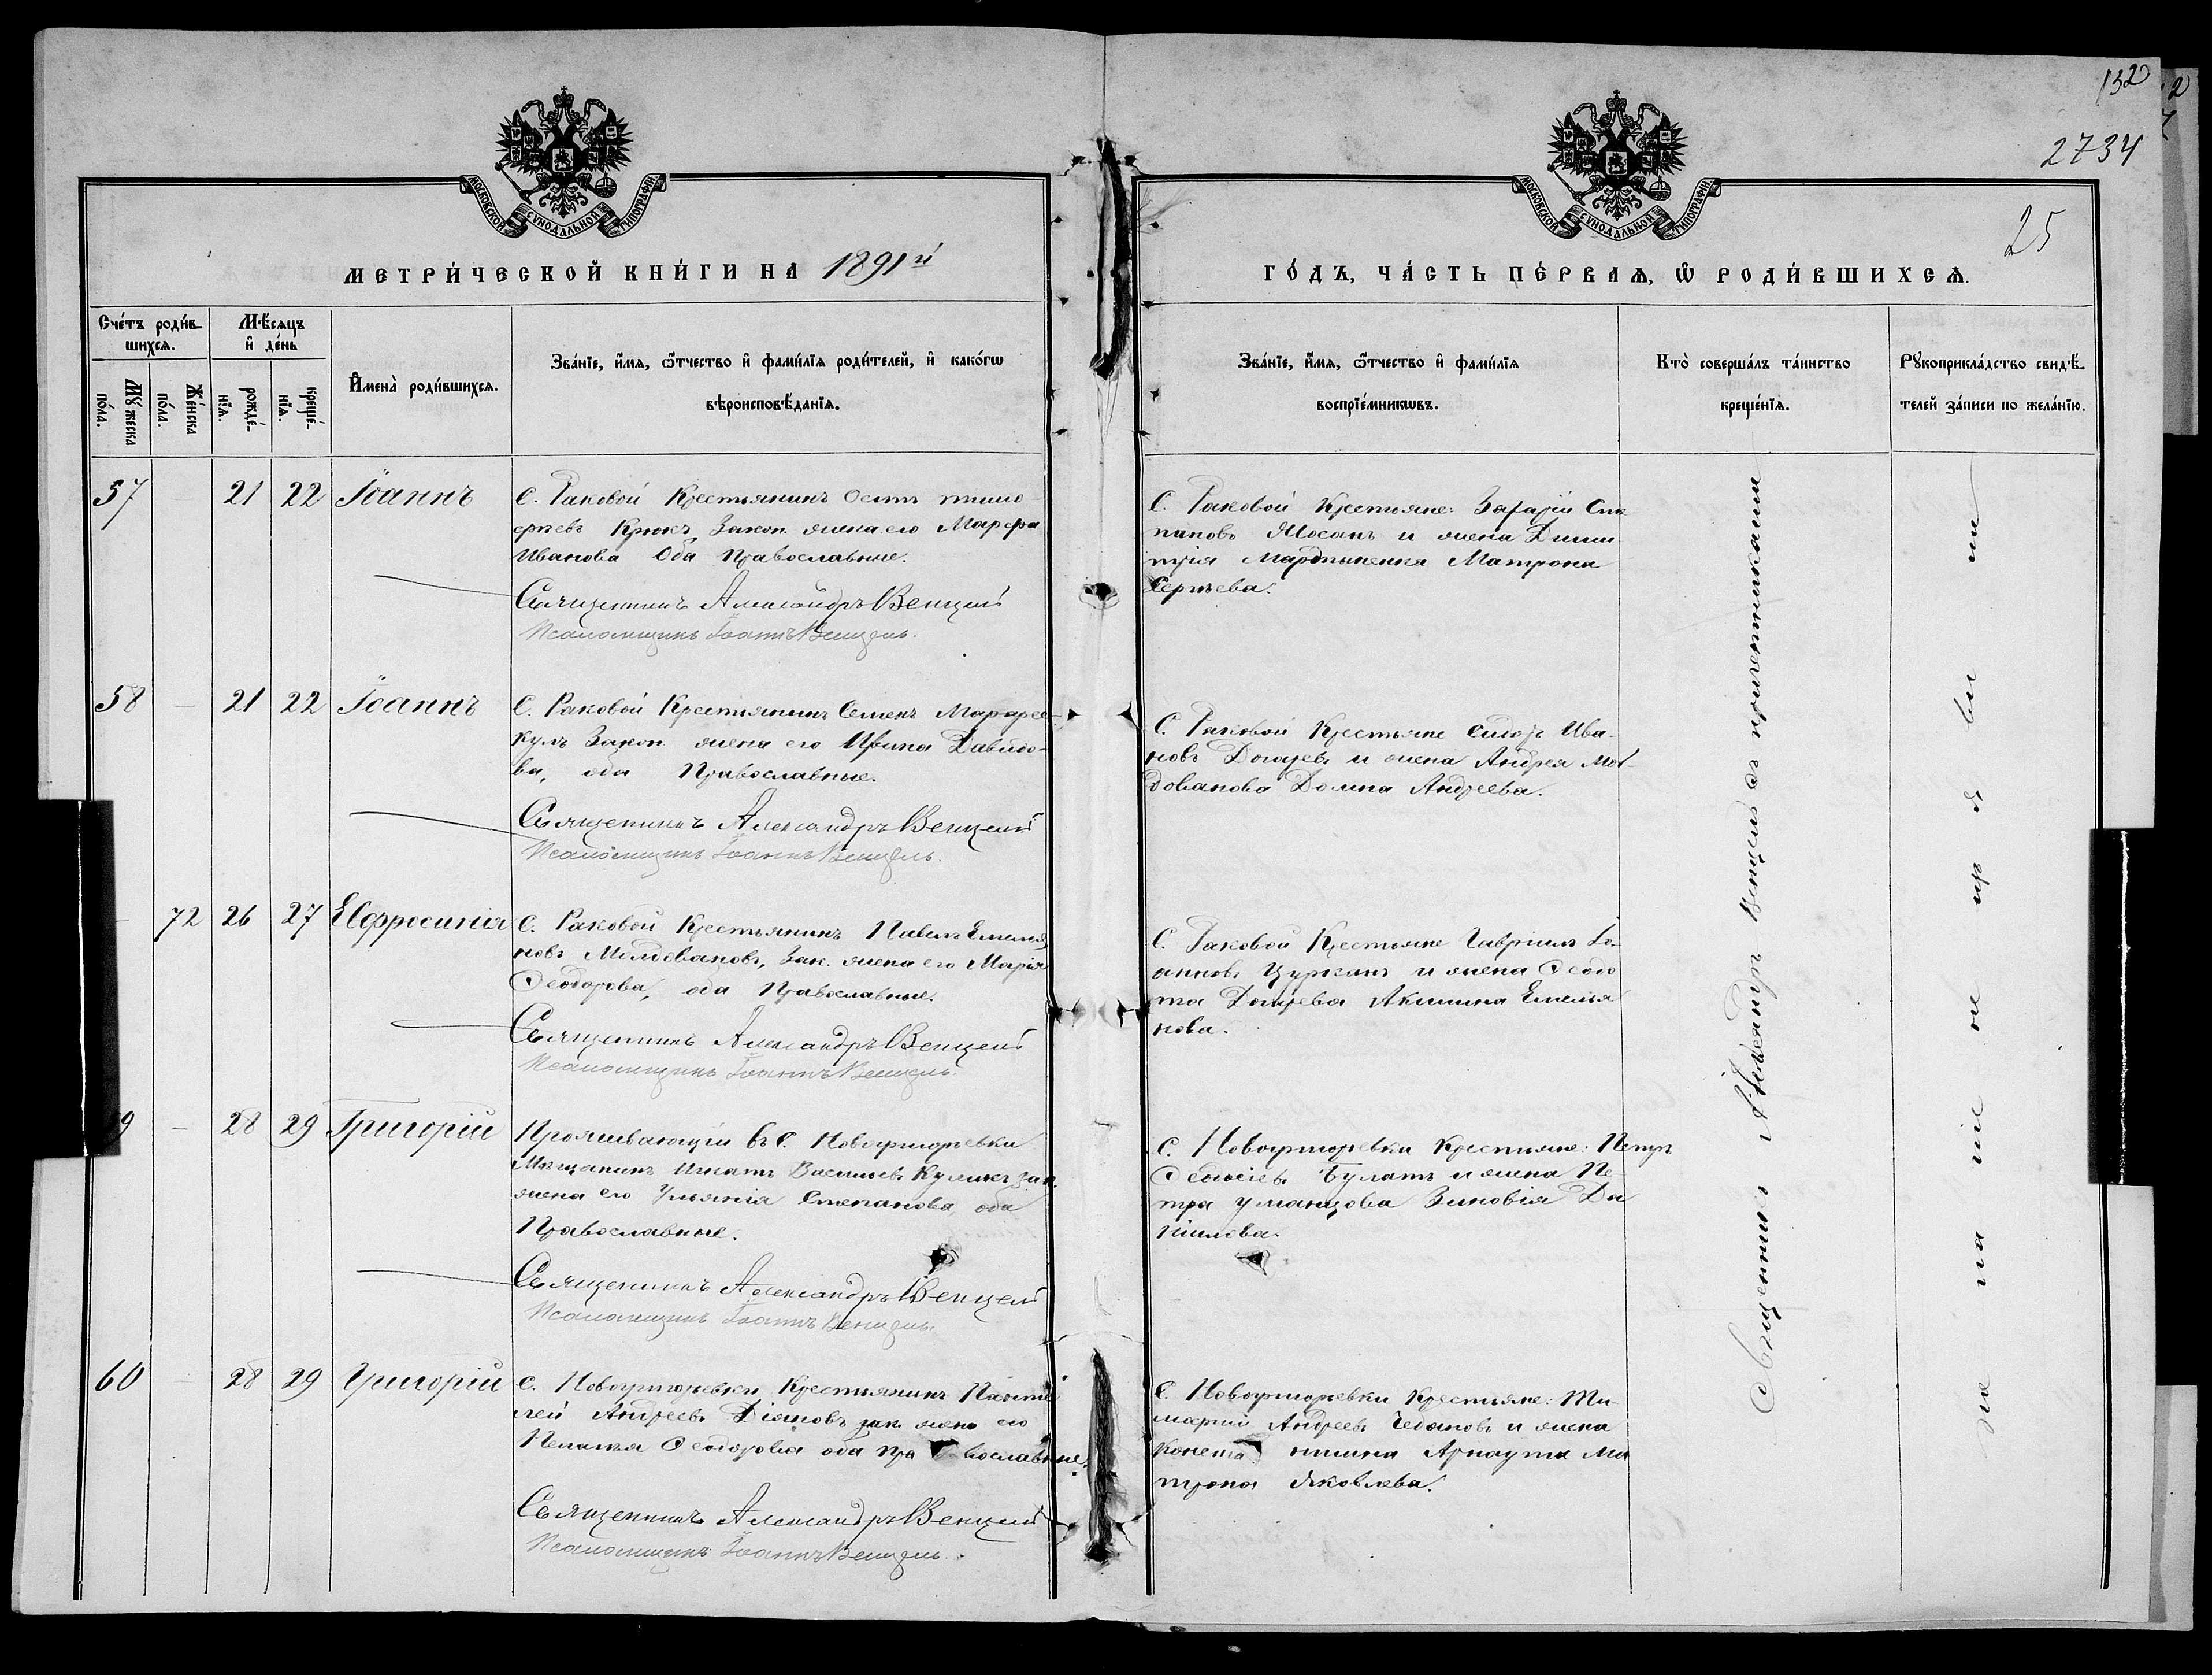 132
2734
25
МОСКОВСКОЙ СѴНОДАЛЬНОЙ ТИПОГРАФІИ.
МОСКОВСКОЙ СѴНОДАЛЬНОЙ ТИПОГРАФІИ.
МЕТРИ́ЧЕСКОЙ КНИ́ГИ НА 1891й
ГО́ДЪ, ЧА́СТЬ ПЕ́РВАѦ, Ѡ҆ РОДИ́ВШИХСѦ.
Сче́тъ роди́в-
шихсѧ.
Мѣ́сѧцъ
и҆ де́нь
Мꙋ́жеска
по́ла.
Же́нска
по́ла.
рожде́-
нїѧ.
креще́-
нїѧ.
И҆мена̀ роди́вшихсѧ.
Зва́нїе, и҆́мѧ, ѻ҆́тчество и҆ фами́лїѧ роди́телей, и҆ како́гѡ
вѣроисповѣ́данїѧ.
Зва́нїе, и҆́мѧ, ѻ҆́тчество и҆ фами́лїѧ
воспрїе́мникѡвъ.
Кто̀ соверша́лъ та́инство
креще́нїѧ.
Рꙋкоприкла́дство свидѣ́-
телей за́писи по жела́нїю.
57 – 21 22 Іоаннъ
С. Раковой Крестьянинъ
Крюкъ, Закон. жена его Марфа
Иванова Оба Православные.
Священникъ Александръ Венцель
Псаломщикъ Іоаннъ Венцель.
С. Раковой Крестьяне: Сте
пановъ и жена Дими
трія Матрона
Сергѣева.
58 – 21 22 Іоаннъ
С. Раковой Крестьянинъ Семенъ
Закон. жена его Ирина Давидо-
ва, оба Православные.
Священникъ Александръ Венцель
Псаломщикъ Іоаннъ Венцель.
С. Раковой Крестьяне Сидоръ Ива-
новъ и жена Андрея Мол-
дованова Домна Андреева.
72 26 27 Евфросинія
С. Раковой Крестьянинъ Павелъ Емелья
новъ Молдовановъ, Зак. жена его Марія
Ѳеодорова, оба Православные.
Священникъ Александръ Венцель
Псаломщикъ Іоаннъ Венцель.
С. Раковой Крестьяне Гавріилъ Іо-
анновъ Цурканъ и жена Ѳеодо
та Акилина Емелья
нова.
9 – 28 29 Григорій
Проживающій въ с. Новогригорьевки
Мѣщанинъ Игнатъ Васильевъ Куликъ зак.
жена его Ульянія Степанова, оба
Православные.
Священникъ Александръ Венцель
Псаломщикъ Іоаннъ Венцель.
С. Новогригорьевки Крестьяне: Петръ
Булатъ и жена Пе
тра Уманцова Зиновія Да
ніилова.
60 – 28 29 Григорій
С. Новогригорьевки Крестьянинъ Панте
лей Андреевъ Діяновъ зак. жена его
Пелагія Ѳеодорова оба Православные.
Священникъ Александръ Венцель
Псаломщикъ Іоаннъ Венцель.
С. Новогригорьевки Крестьяне:
Андреевъ Чебановъ и жена
Арнаута Ма
трона Яковлева.
Священникъ Александръ Венцель съ причетниками